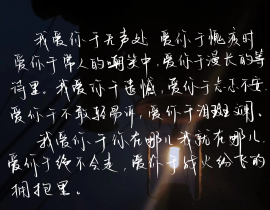 我爱你于无声处 爱你于愧疚时
爱你于常人的嘲笑中,爱你于漫长的等
待里。我爱你于遗憾,爱你于忐忑不安
爱你于不敢轻易讲,爱你于泪斑刻。
我爱你于你在哪儿我就在哪儿,
爱你于绝不会走,爱你于战火纷飞的
拥抱里。